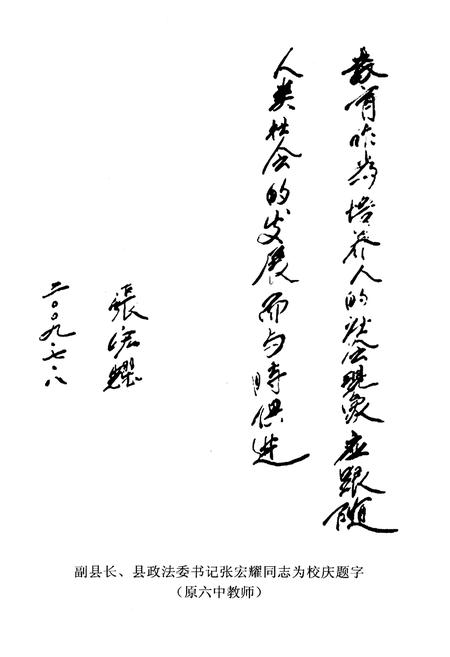 教育作为培养人的社会现象应跟随
人类社会的发展而与时俱进
張宏耀
二〇〇九.七.八
副县长、县政法委书记张宏耀同志为校庆题字
（原六中教师）